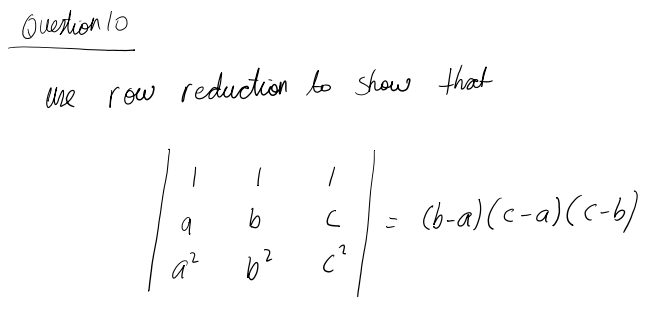 Question 10
use row reduction to show that
| 1 1 1 |
| a b c | = (b-a)(c-a)(c-b)
| a² b² c² |